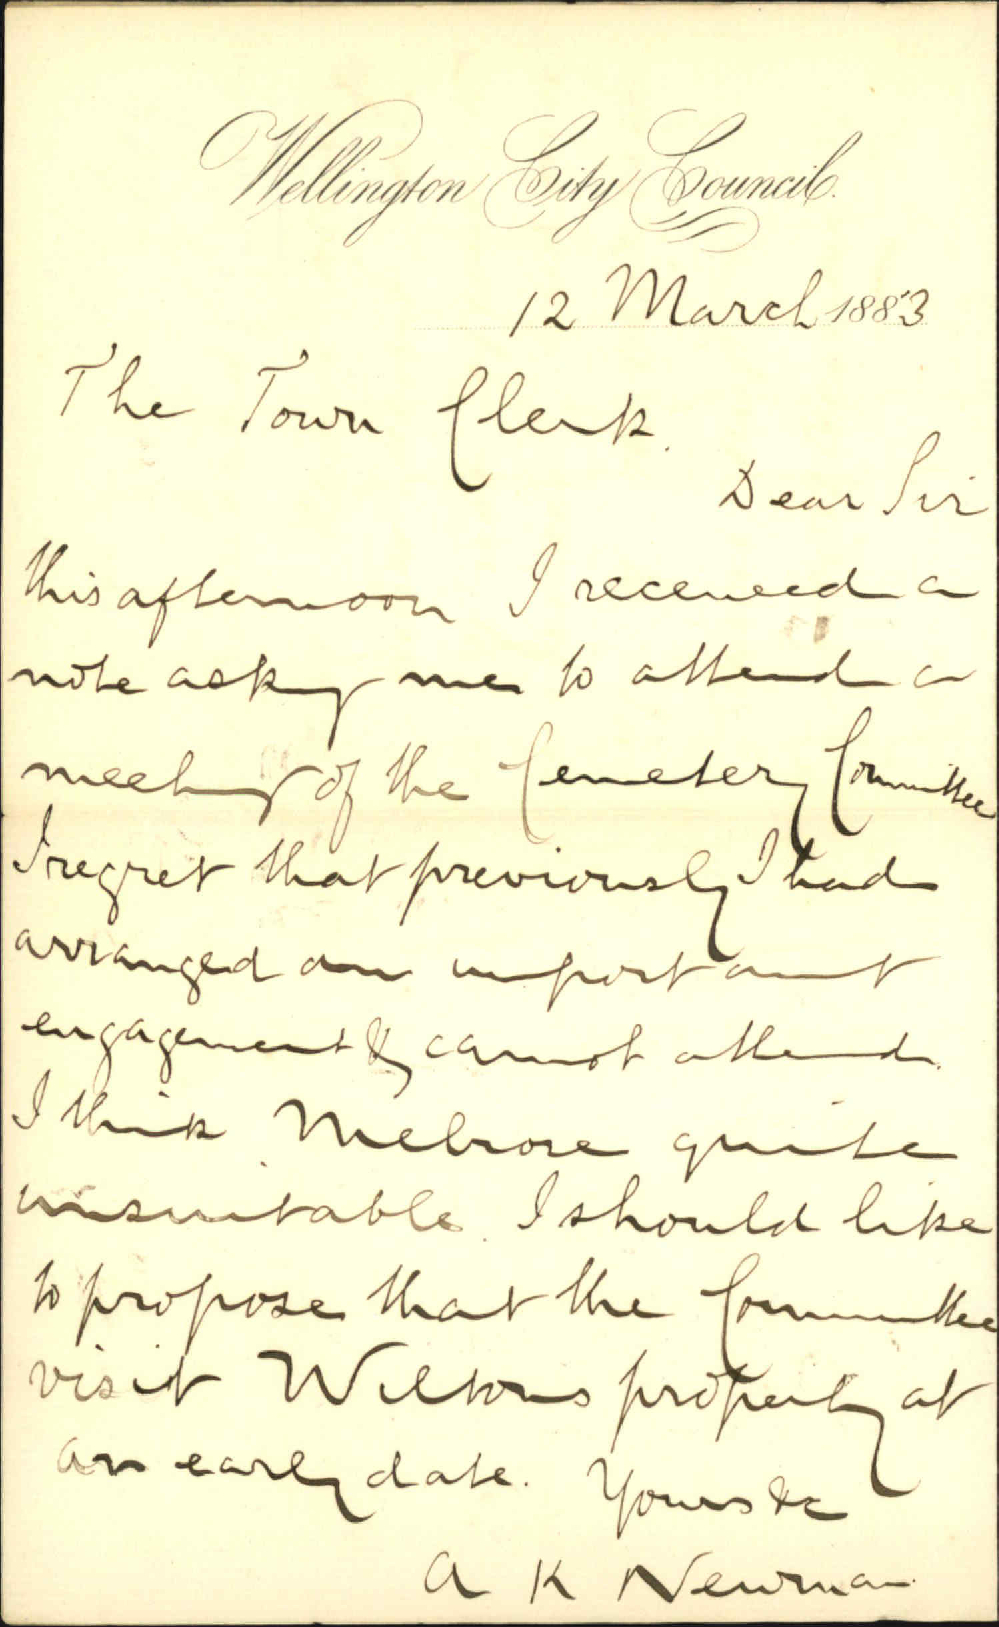 Wellington City Council.
12 March 1883
The Town Clerk.
Dear Sir
this afternoon I received a
note asking me to attend a
meeting of the Cemetery Committee
I regret that previously I had
arranged an important
engagement & cannot attend.
I think Melrose quite
unsuitable. I should like
to propose that the Committee
visit Wiltons property at
an early date. Yours &c
A K Newman